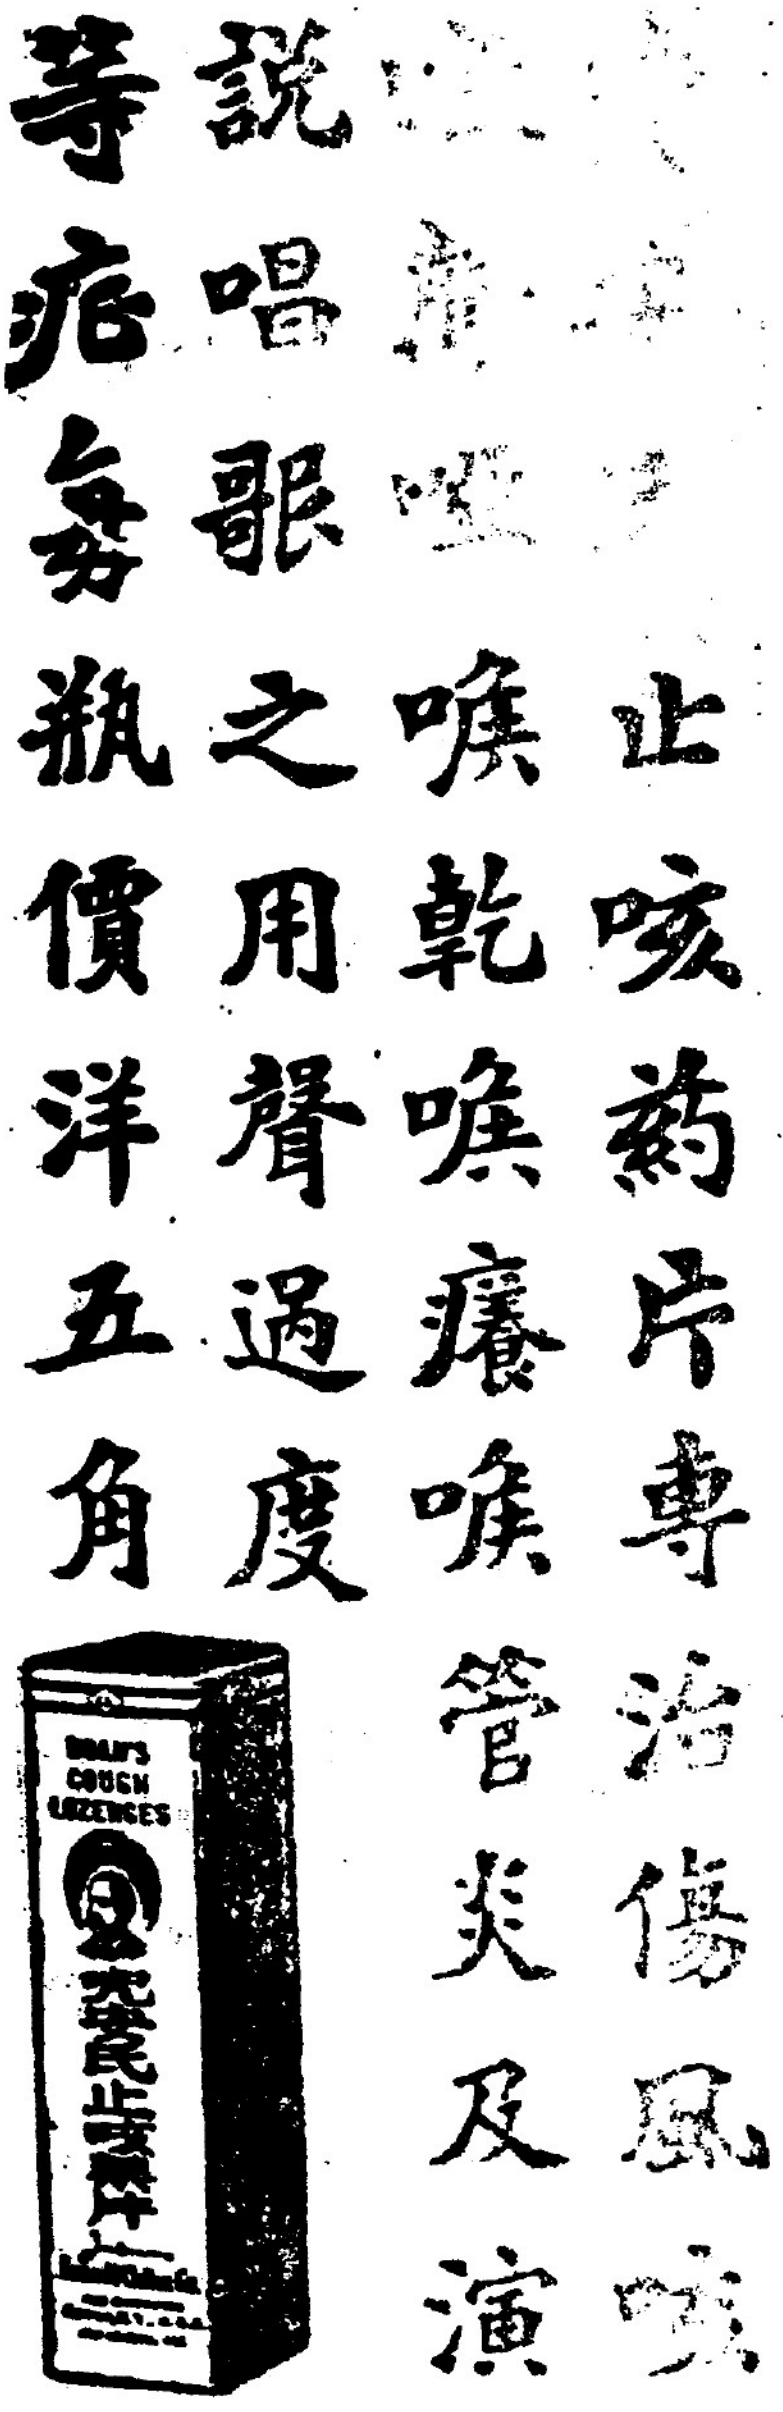 止咳藥片專治傷風咳
啞喉乾喉癢喉管炎及演
說唱歌之用聲過度
等症每瓶價洋五角
DOAN'S
COUGH
LOZENGES
止咳藥片